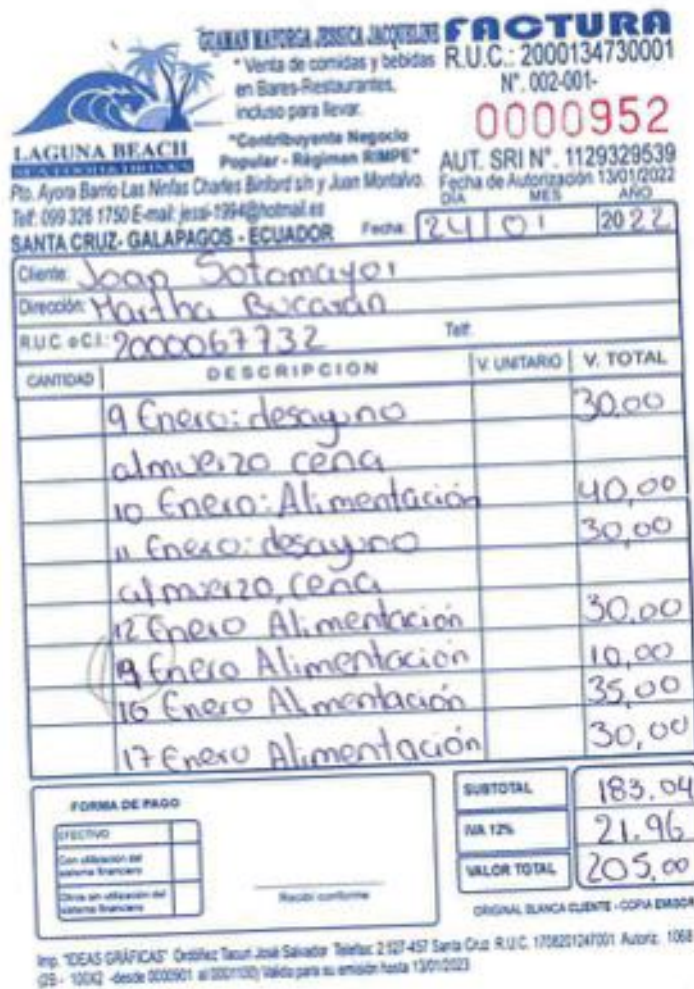 GUAMAN MAYORGA JESSICA JACQUELINE
FACTURA
* Venta de comidas y bebidas
en Bares-Restaurantes,
incluso para llevar.
"Contribuyente Negocio
Popular - Régimen RIMPE"
R.U.C.: 2000134730001
N°. 002-001-
0000952
AUT. SRI N°. 1129329539
Fecha de Autorización 13/01/2022
LAGUNA BEACH
Pto. Ayora Barrio Las Ninfas Charles Binford s/n y Juan Montalvo.
Telf: 099 326 1750 E-mail: jessi-1994@hotmail.es
SANTA CRUZ- GALAPAGOS - ECUADOR
DÍA MES AÑO
Fecha: 24 01 2022
Cliente: Joan Sotomayor
Dirección: Martha Bucarán
R.U.C o C.I.: 2000067732 Telf:
CANTIDAD DESCRIPCION V. UNITARIO V. TOTAL
9 Enero: desayuno 30,00
almuerzo cena
10 Enero: Alimentación 40,00
11 Enero: desayuno 30,00
almuerzo, cena
12 Enero Alimentación 30,00
Enero Alimentación 10,00
16 Enero Alimentación 35,00
17 Enero Alimentación 30,00
FORMA DE PAGO
EFECTIVO
Con utilización del
sistema financiero
Otros sin utilización del
sistema financiero
Recibí conforme
SUBTOTAL 183.04
IVA 12% 21.96
VALOR TOTAL 205,00
ORIGINAL BLANCA CLIENTE - COPIA EMISOR
Imp. "IDEAS GRÁFICAS" Ordóñez Tacuri José Salvador Telefax: 2 527-457 Santa Cruz R.U.C. 1708201247001 Autoriz. 1068
100X2 -desde 0000901 al 0001100) Válido para su emisión hasta 13/01/2023